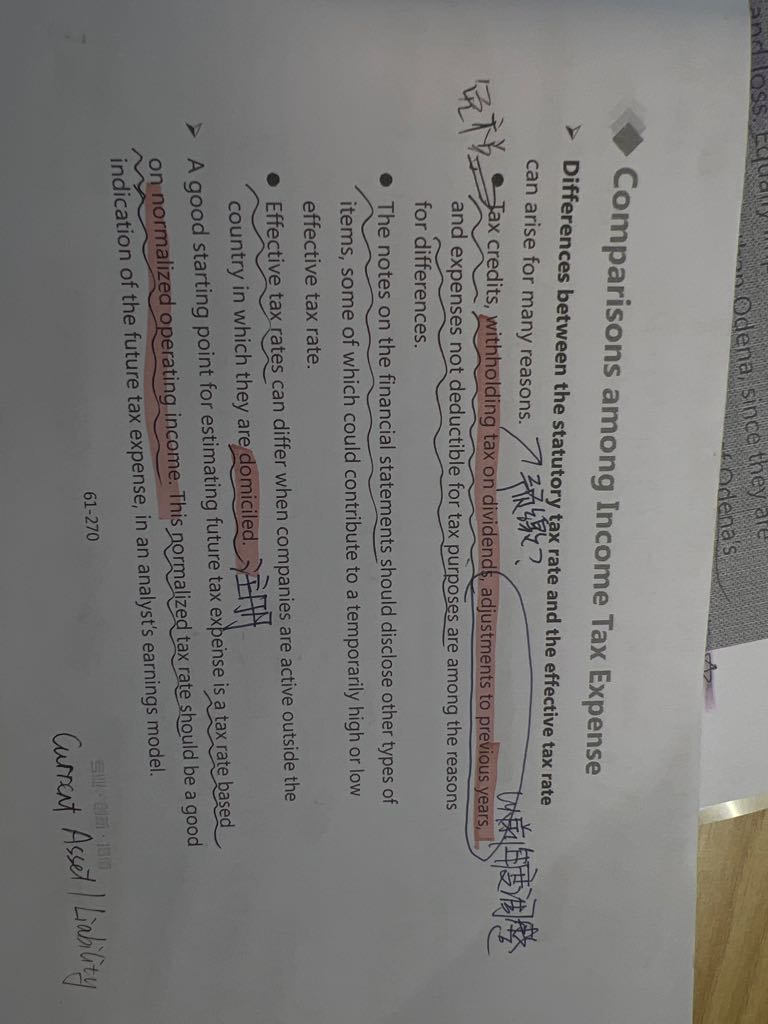 and loss. Equally
Odena, since they are
Odena's
Comparisons among Income Tax Expense
➢ Differences between the statutory tax rate and the effective tax rate
can arise for many reasons. 预缴?
抵税
● Tax credits, withholding tax on dividends, adjustments to previous years,
以前年度调整
and expenses not deductible for tax purposes are among the reasons
for differences.
● The notes on the financial statements should disclose other types of
items, some of which could contribute to a temporarily high or low
effective tax rate.
● Effective tax rates can differ when companies are active outside the
country in which they are domiciled. 注册
➢ A good starting point for estimating future tax expense is a tax rate based
on normalized operating income. This normalized tax rate should be a good
indication of the future tax expense, in an analyst's earnings model.
61-270
Current Asset / Liability